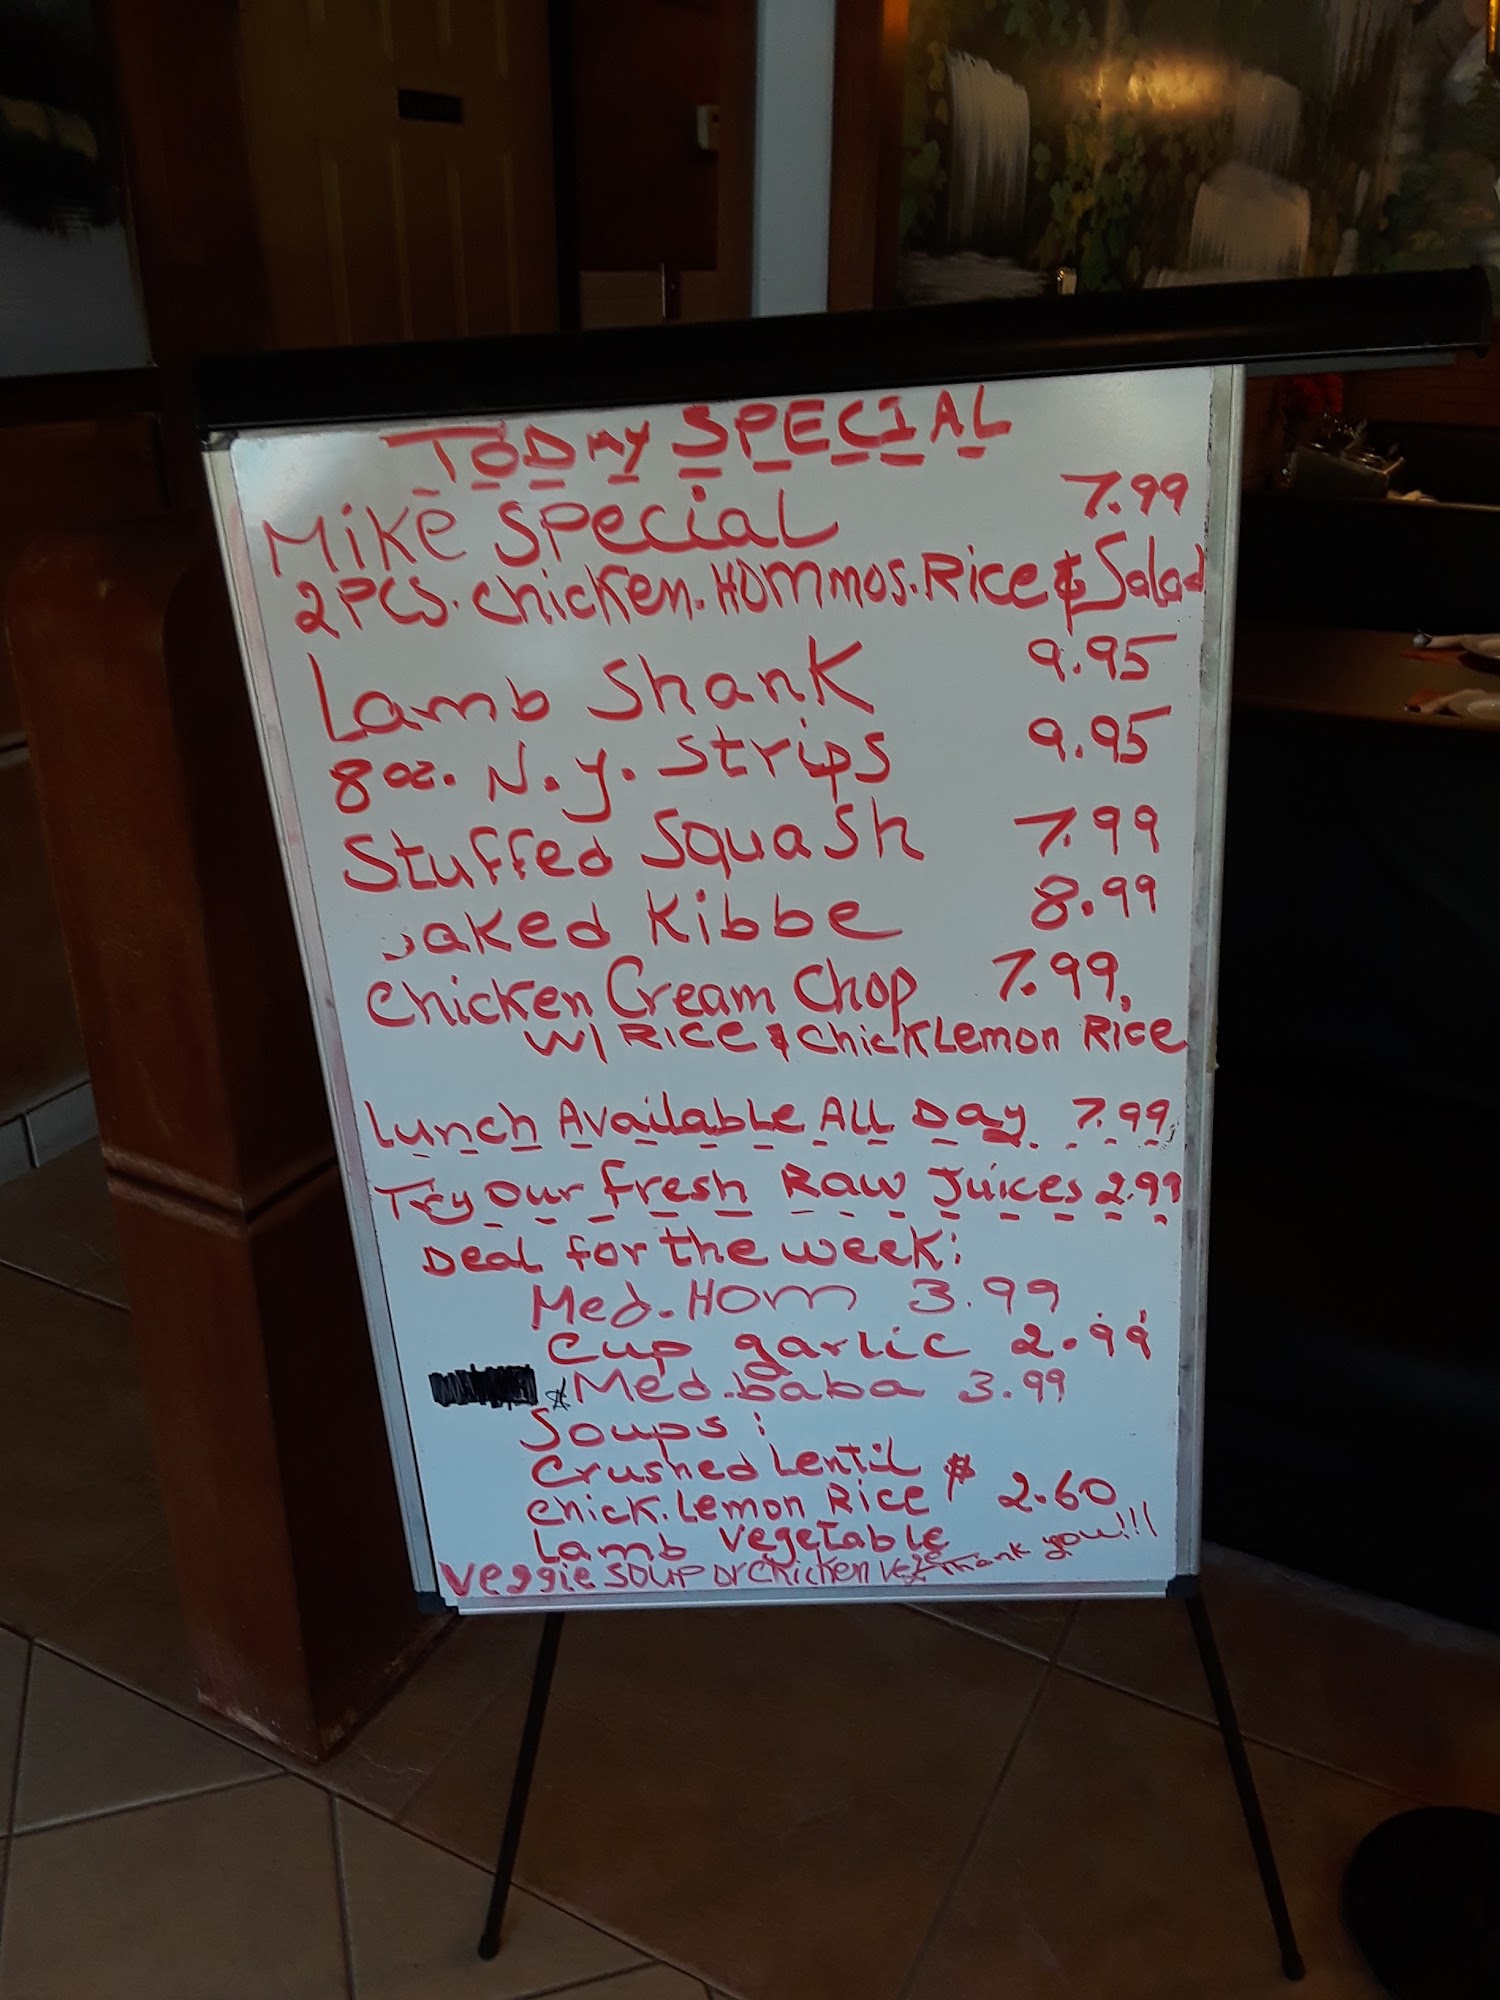 TODAY SPECIAL
Mike Special 7.99
2 PCS. Chicken. Hommos. Rice & Salad
Lamb Shank 9.95
8 oz. N.y. Strips 9.95
Stuffed Squash 7.99
aked Kibbe 8.99
Chicken Cream Chop 7.99.
W/ RICE & Chick Lemon Rice
Lunch Available All Day 7.99
Try our fresh Raw Juices 2.99
Deal for the week:
Med. Hom 3.99
Cup garlic 2.99
Med. baba 3.99
Soups:
Crushed Lentil $
Chick. Lemon Rice 2.60
Lamb Vegetable
Veggie Soup or Chicken Thank you!!!